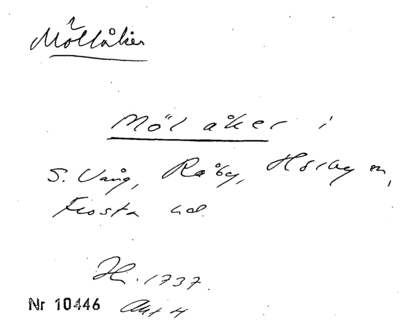 Möllåker
Möl åker i
S. Vång, Råby, Hörby sn,
Frosta hd
H. 1737.
Nr 10446 Akt 4